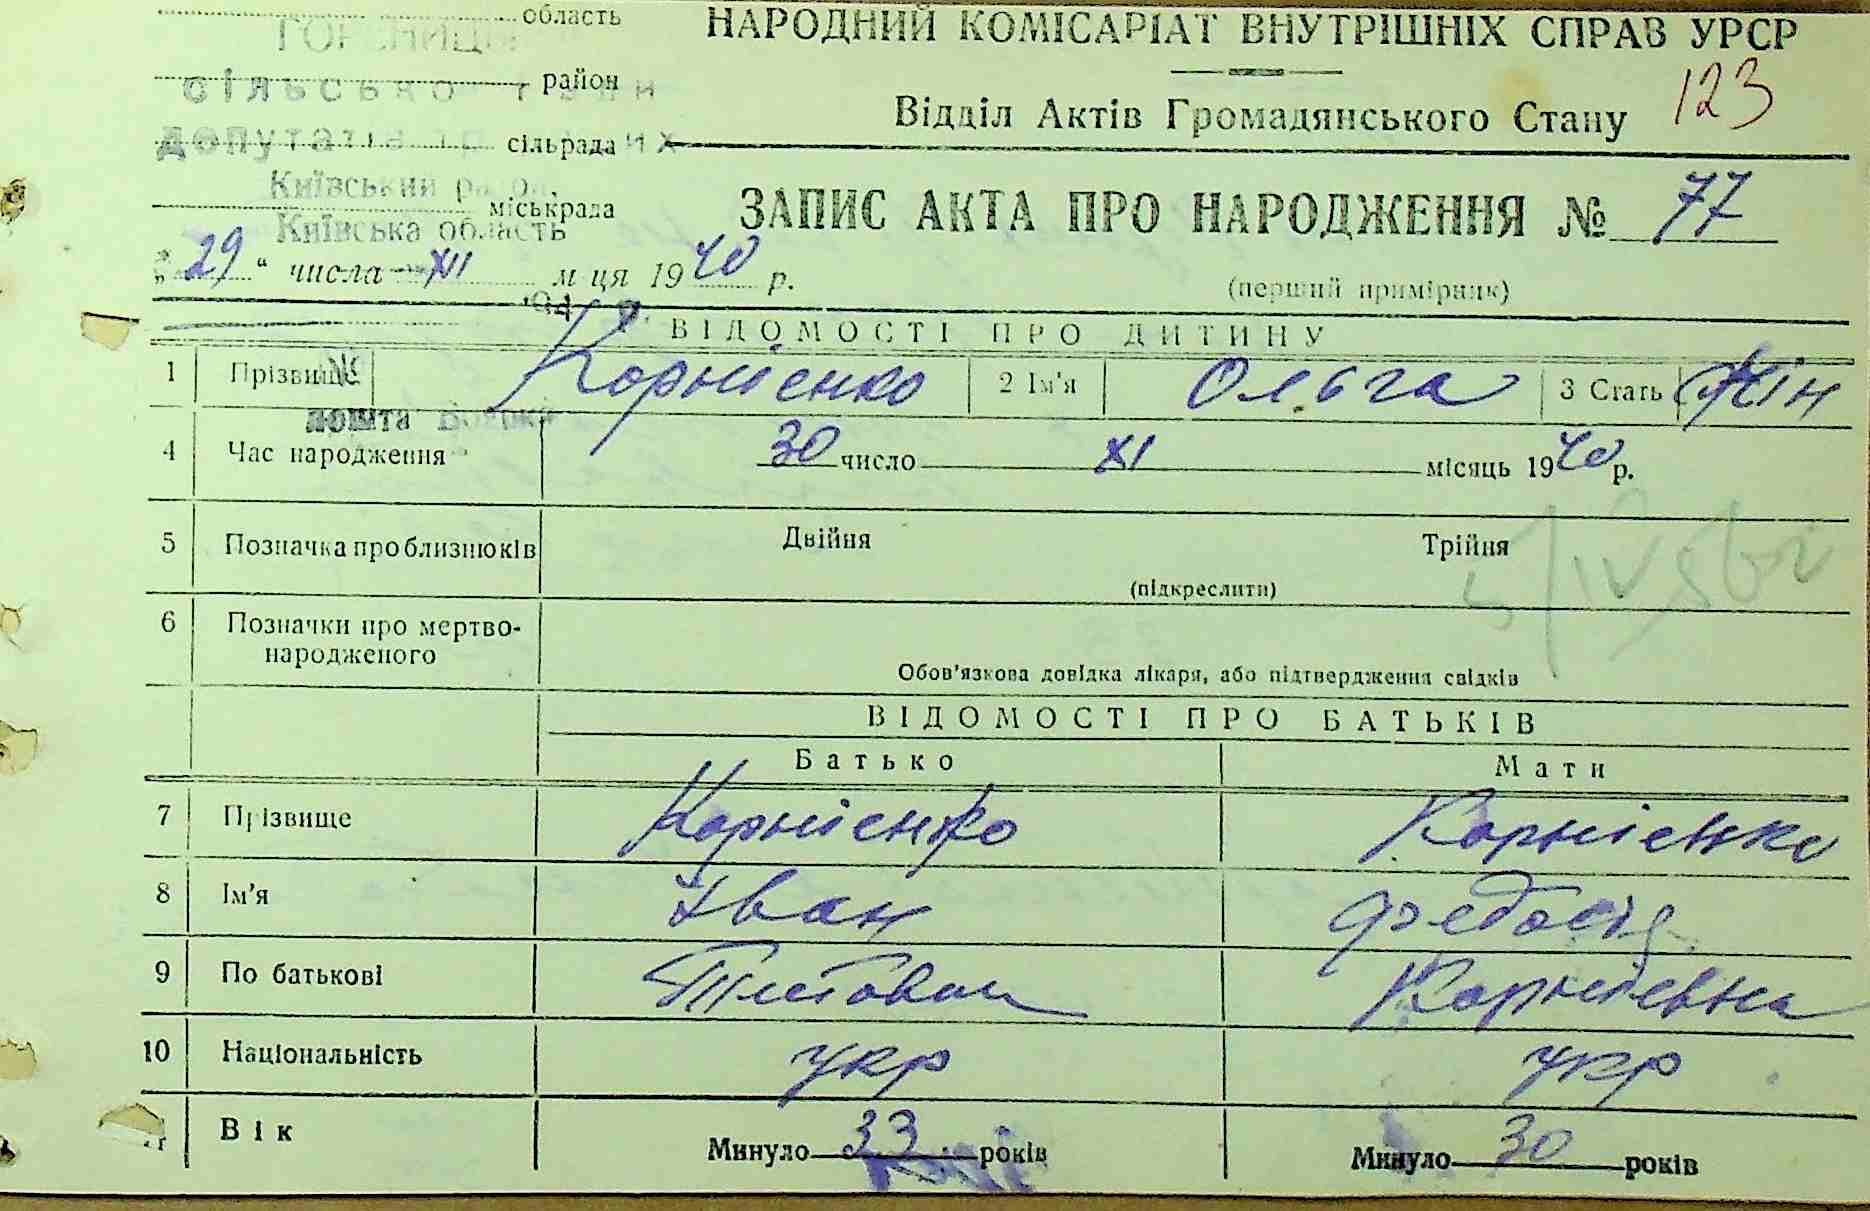 область
НАРОДНИЙ КОМІСАРІАТ ВНУТРІШНІХ СПРАВ УРСР
район
Відділ Актів Громадянського Стану 123
сільрада
Київський
міськрада
Київська область
ЗАПИС АКТА ПРО НАРОДЖЕННЯ № 77
„29“ числа XII м ця 1940 р.
(перший примірник)
ВІДОМОСТІ ПРО ДИТИНУ
1 Прізвище Корнієнко 2 Ім'я Ольга 3 Стать Жін
пошта
4 Час народження 30 число XI місяць 1940 р.
5 Позначка про близнюків Двійня Трійня
(підкреслити)
6 Позначки про мертво-
народженого
Обов'язкова довідка лікаря, або підтвердження свідків
ВІДОМОСТІ ПРО БАТЬКІВ
Батько Мати
7 Прізвище Корнієнко Корнієнко
8 Ім'я Іван Федосія
9 По батькові Титович Корніївна
10 Національність укр укр
11 Вік Минуло 33 років Минуло 30 років